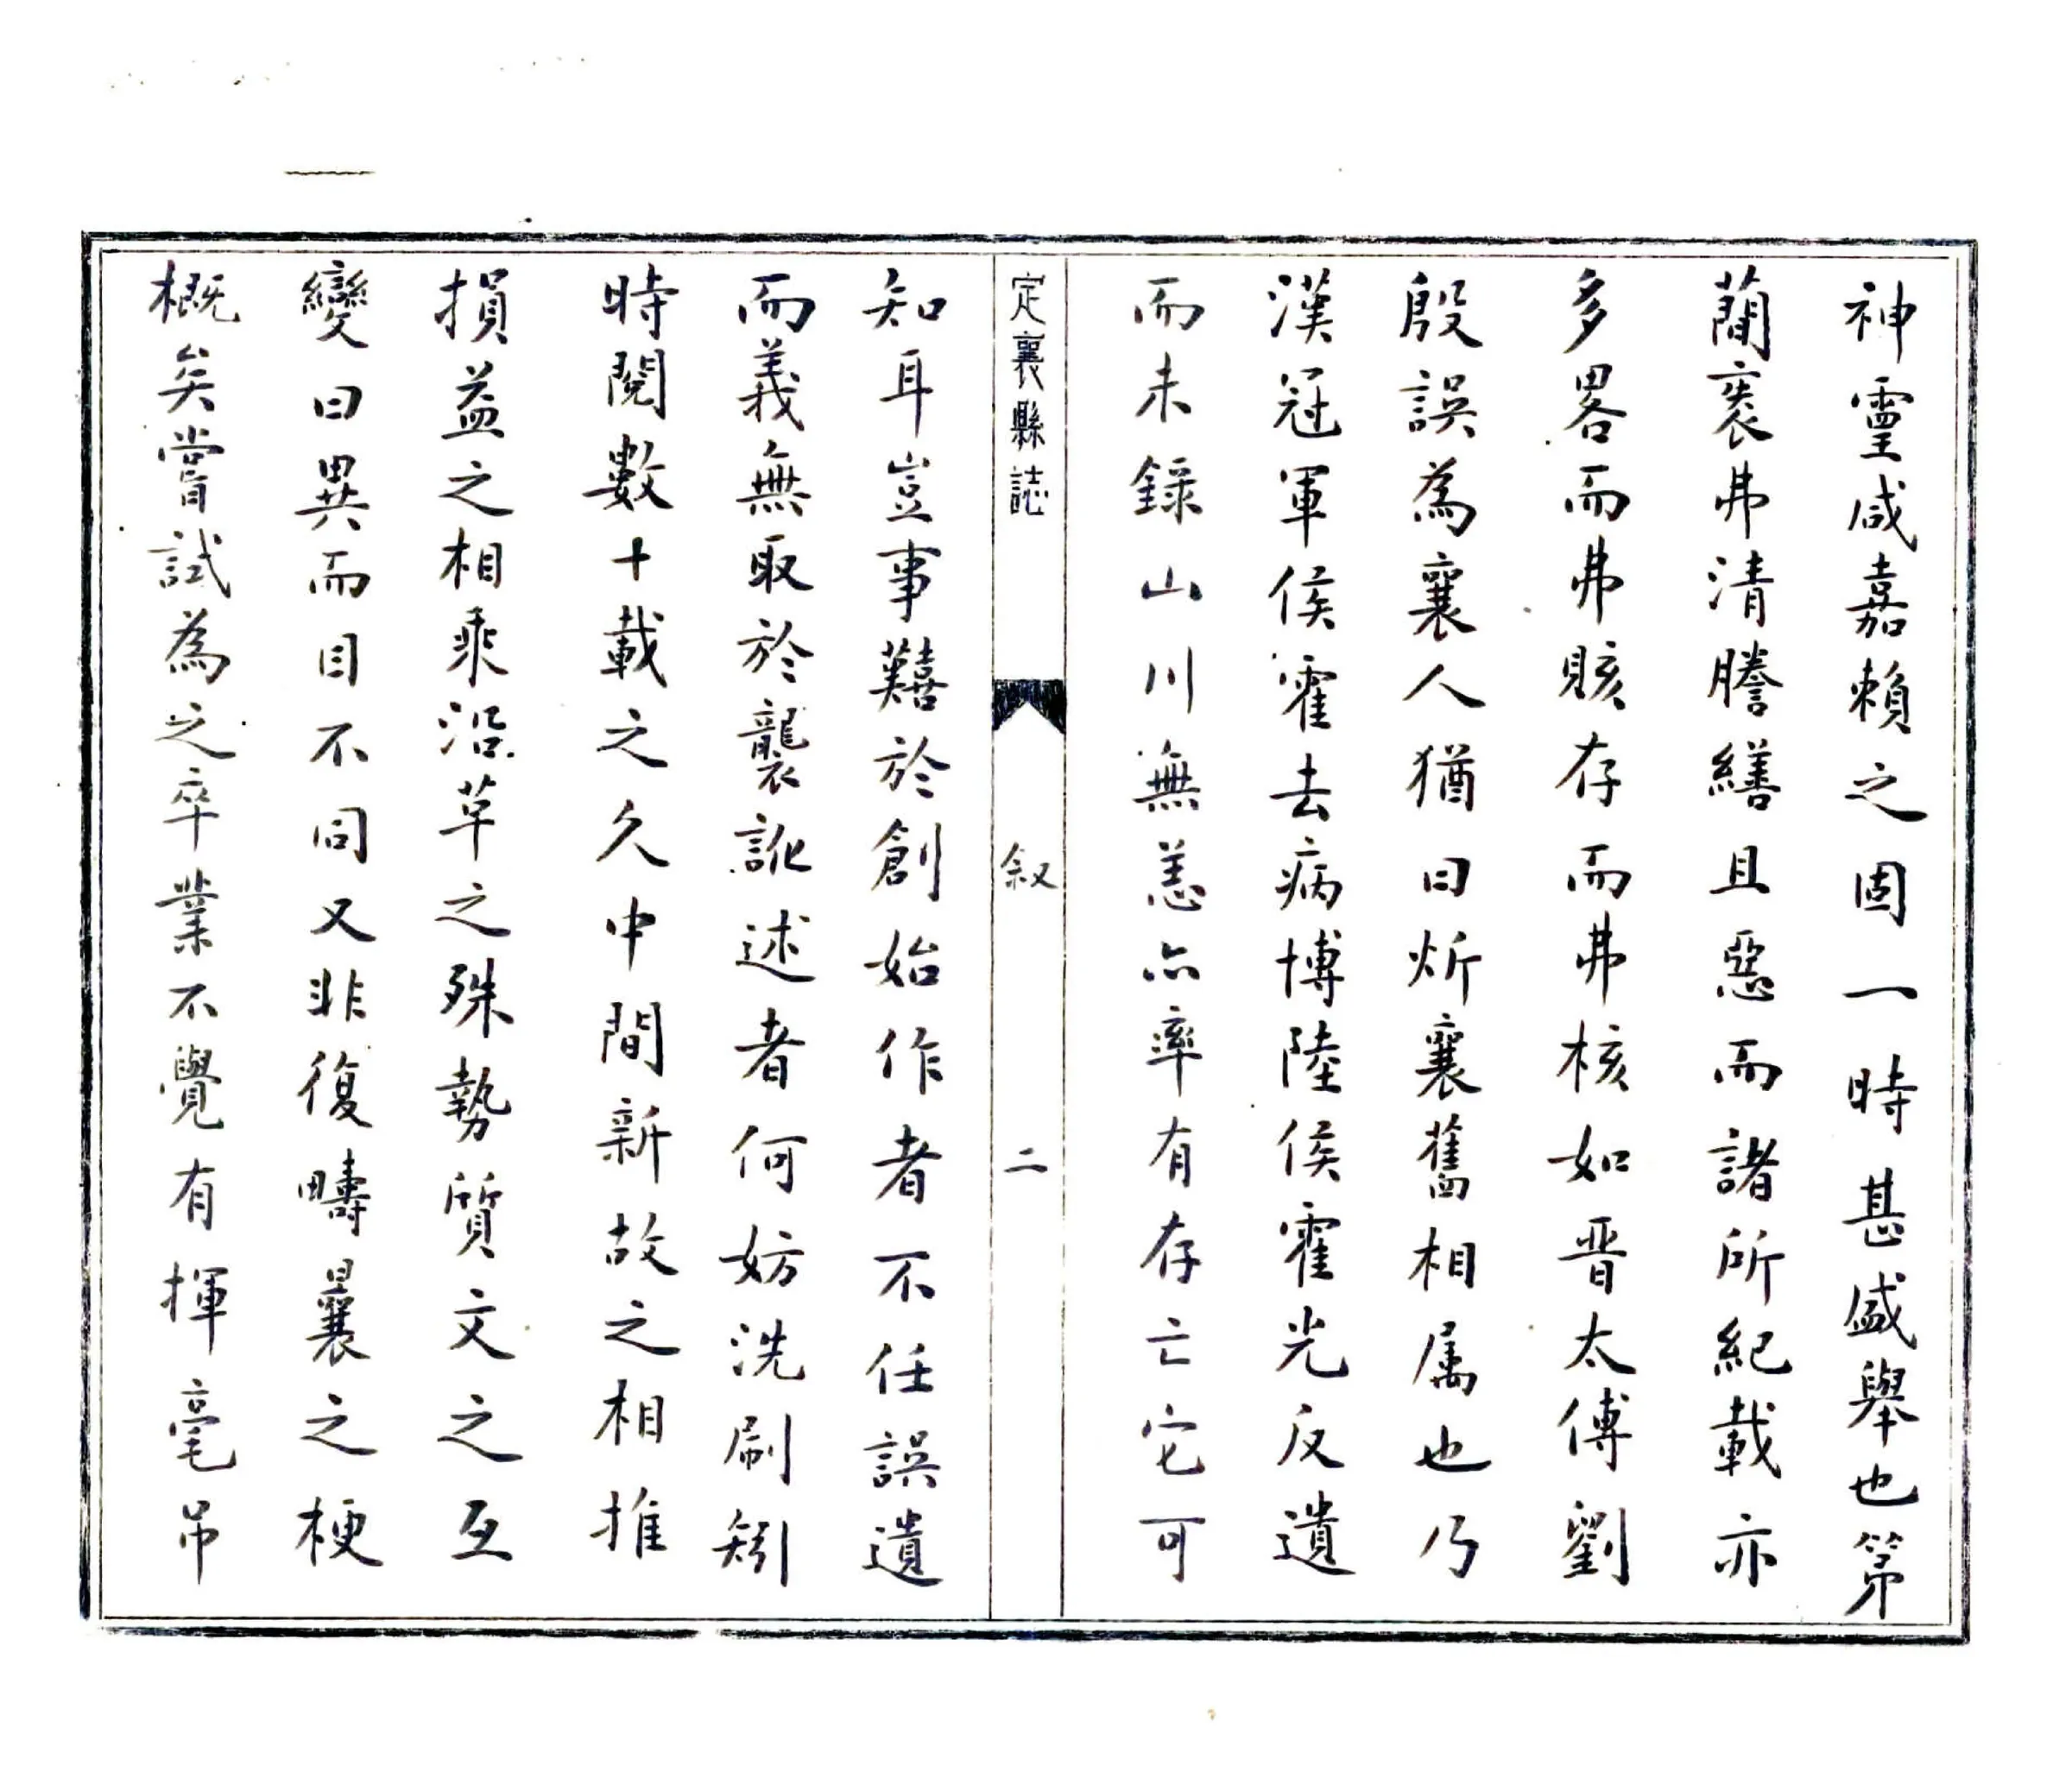 神靈咸嘉賴之固一時甚盛舉也第
蕳袠弗清謄繕且惡而諸所紀載亦
多畧而弗賅存而弗核如晋太傅劉
殷誤為襄人猶曰炘襄舊相属也乃
漢冠軍侯霍去病博陸侯霍光反遺
而未錄山川無恙亦率有存亡它可
定襄縣誌
叙
二
知耳豈事囏於創始作者不任誤遺
而義無取於襲訛述者何妨洗刷矧
時閱數十載之久中間新故之相推
損益之相乘沿革之殊勢質文之互
變曰異而目不同又非復疇曩之梗
概矣嘗試為之卒業不覺有揮毫吊